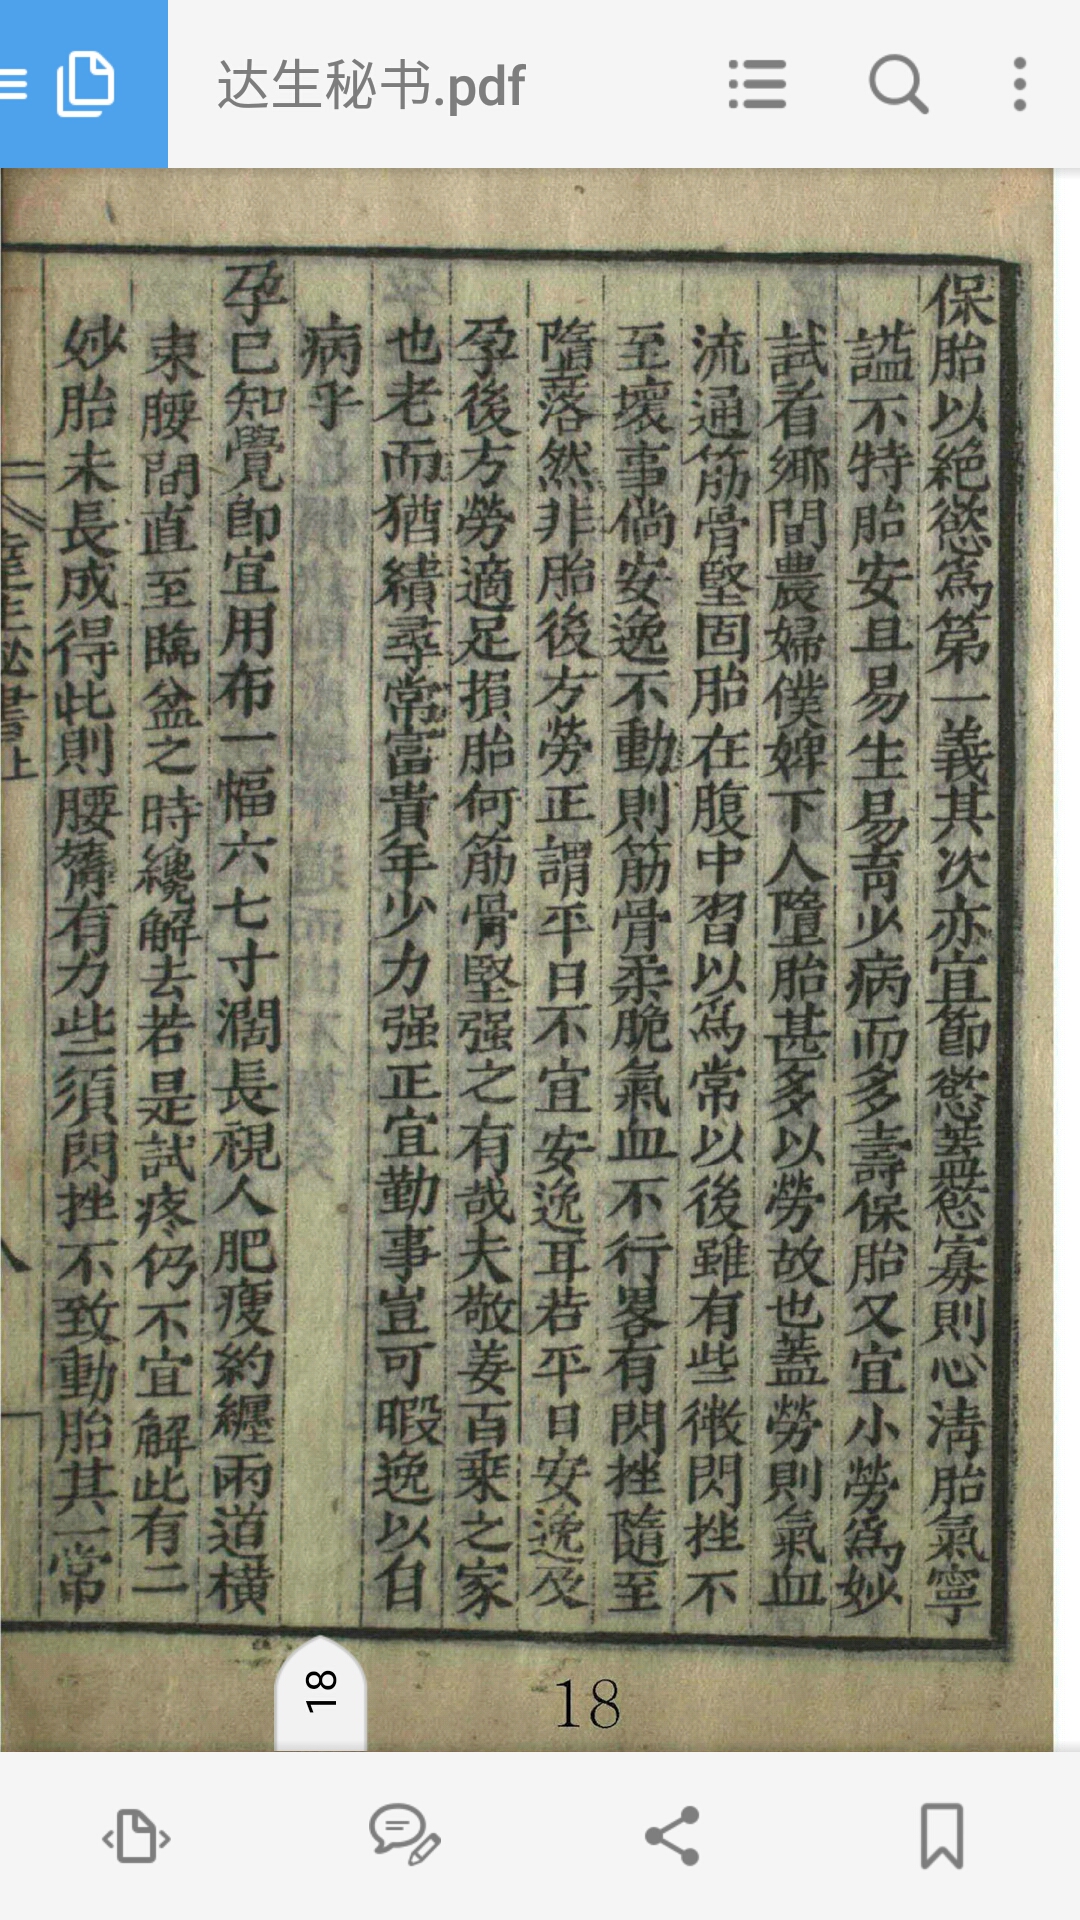 达生秘书.pdf
保胎以絕慾爲第一義其次亦宜節慾蓋慾寡則心清胎氣寧
謐不特胎安且易生易育少病而多壽保胎又宜小勞爲妙
試看鄉間農婦僕婢下人墮胎甚多以勞故也蓋勞則氣血
流通筋骨堅固胎在腹中習以爲常以後雖有些微閃挫不
至壞事倘安逸不動則筋骨柔脆氣血不行畧有閃挫隨至
墮落然非胎後方勞正謂平日不宜安逸耳若平日安逸及
孕後方勞適足損胎何筋骨堅强之有哉夫敬姜百乘之家
也老而猶績尋常富貴年少力强正宜勤事豈可暇逸以自
病乎
孕已知覺卽宜用布一幅六七寸濶長視人肥瘦約纏兩道横
束腰間直至臨盆之時纔解去若是試疼仍不宜解此有二
妙胎未長成得此則腰膂有力些須閃挫不致動胎其一常
達生秘書上
18
18